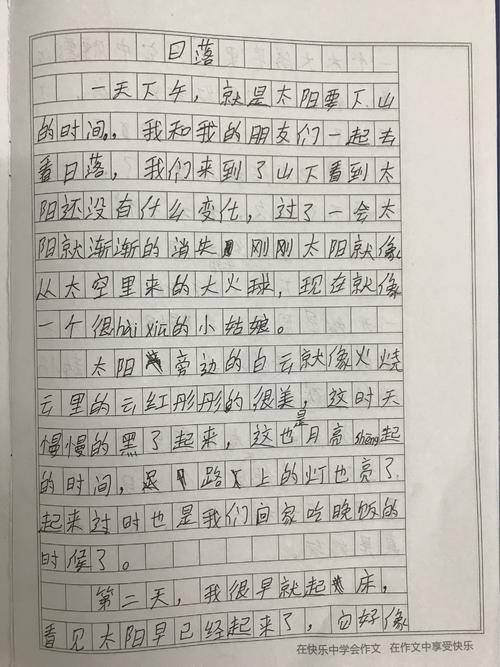 日落
一天下午，就是太阳要下山
的时间，我和我的朋友们一起去
看日落，我们来到了山下看到太
阳还没有什么变化，过了一会太
阳就渐渐的消失 刚刚太阳就像
从太空里来的大火球，现在就像
一个很hài xiū的小姑娘。
太阳旁边的白云就像火烧
云里的云红彤彤的很美，这时天
慢慢的黑了起来，这也是月亮shēng起
的时间，路上的灯也亮了
起来这时也是我们回家吃晚饭的
时侯了。
第二天，我很早就起床，
看见太阳早已经起来了，它好像
在快乐中学会作文 在作文中享受快乐